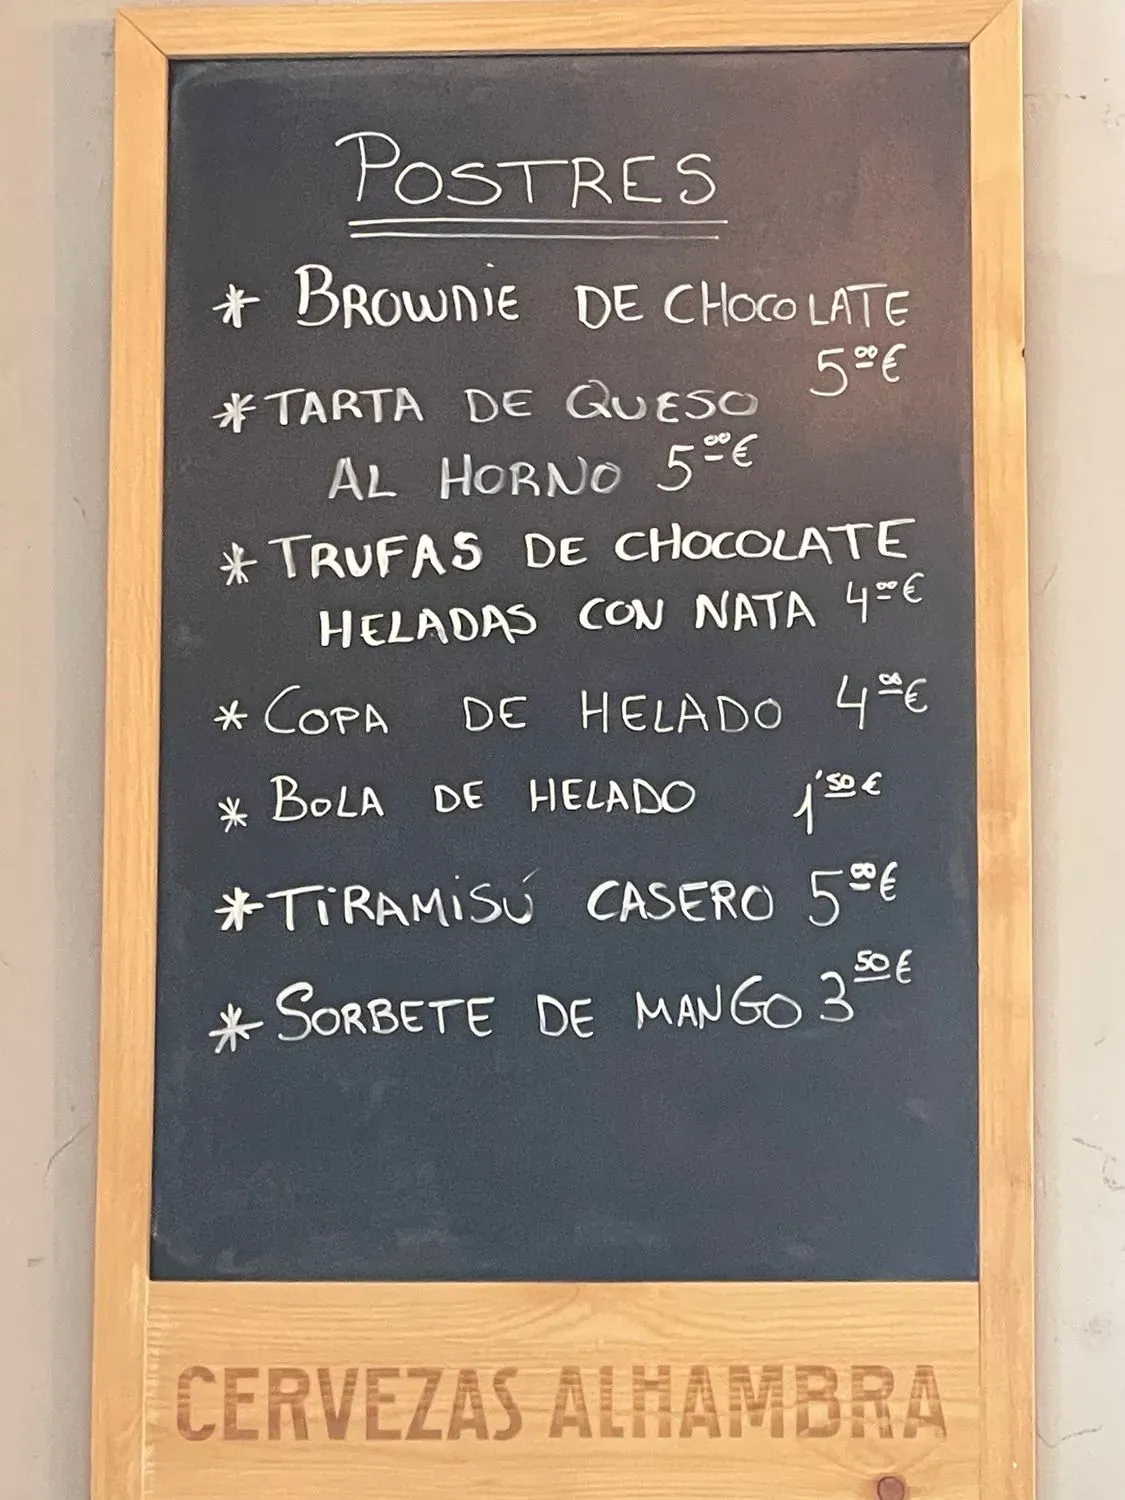 POSTRES
* BROWNIE DE CHOCOLATE
5⁰⁰€
* TARTA DE QUESO
AL HORNO 5⁰⁰€
* TRUFAS DE CHOCOLATE
HELADAS CON NATA 4⁰⁰€
* COPA DE HELADO 4⁰⁰€
* BOLA DE HELADO 1'⁵⁰€
* TIRAMISÚ CASERO 5⁰⁰€
* SORBETE DE MANGO 3⁵⁰€
CERVEZAS ALHAMBRA